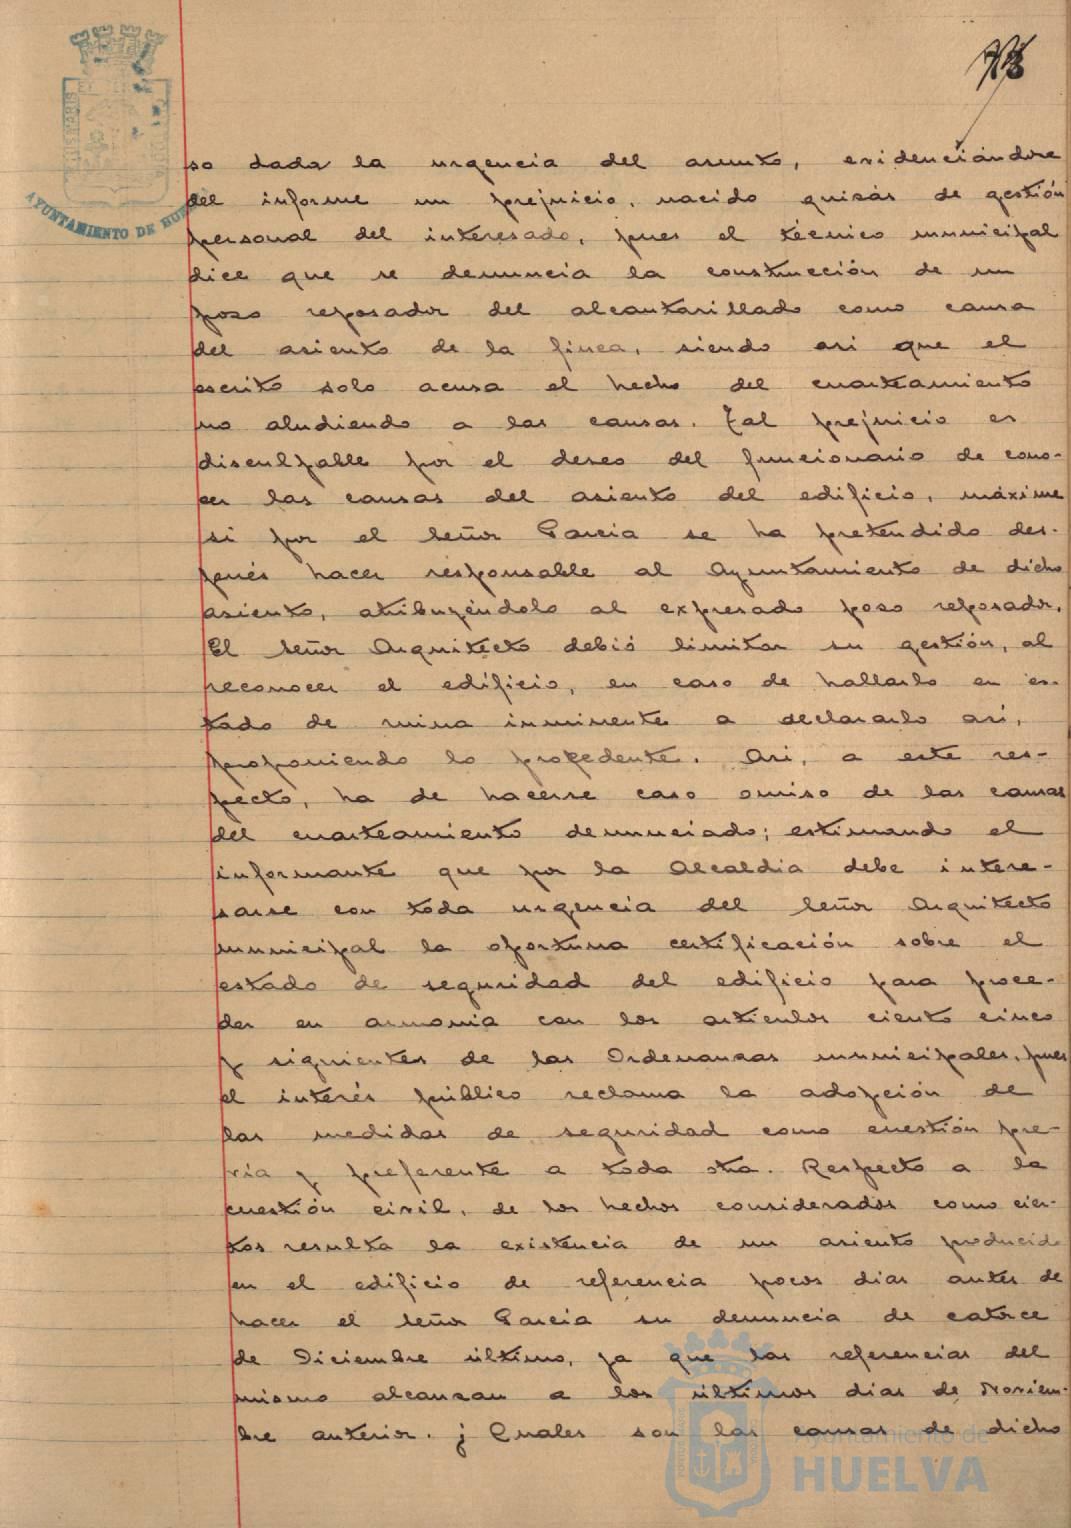 so dada la urgencia del asunto, evidenciándose
del informe un prejuicio, nacido quizás de gestión
personal del interesado, pues el técnico municipal
dice que se denuncia la construcción de un
poso reposador del alcantarillado como causa
del asiento de la finca, siendo asi que el
escrito solo acusa el hecho del cuarteamiento
no aludiendo a las causas. Tal prejuicio es
disculpable por el deseo del funcionario de cono-
cer las causas del asiento del edificio, máxime
si por el Señor Garcia se ha pretendido des-
pués hacer responsable al Ayuntamiento de dicho
asiento, atribuyéndolo al expresado poso reposador.
El Señor Arquitecto debió limitar su gestión, al
reconocer el edificio, en caso de hallarlo en es-
tado de ruina inminente a declararlo asi,
proponiendo lo procedente. Asi, a este res-
pecto, ha de hacerse caso omiso de las causas
del cuarteamiento denunciado; estimando el
informante que por la Alcaldia debe intere-
sarse con toda urgencia del Señor Arquitecto
municipal la oportuna certificación sobre el
estado de seguridad del edificio para proce-
der en armonia con los articulos ciento cinco
y siguientes de las Ordenanzas municipales, pues
el interés público reclama la adopción de
las medidas de seguridad como cuestión pre-
via y preferente a toda otra. Respecto a la
cuestión civil, de los hechos considerados como cier-
tos resulta la existencia de un asiento producido
en el edificio de referencia pocos dias antes de
hacer el Señor Garcia su denuncia de catorce
de Diciembre último, ya que las referencias del
mismo alcanzan a los últimos dias de Noviem-
bre anterior. ¿ Cuales son las causas de dicho
AYUNTAMIENTO DE HUELVA
Ayuntamiento de
HUELVA